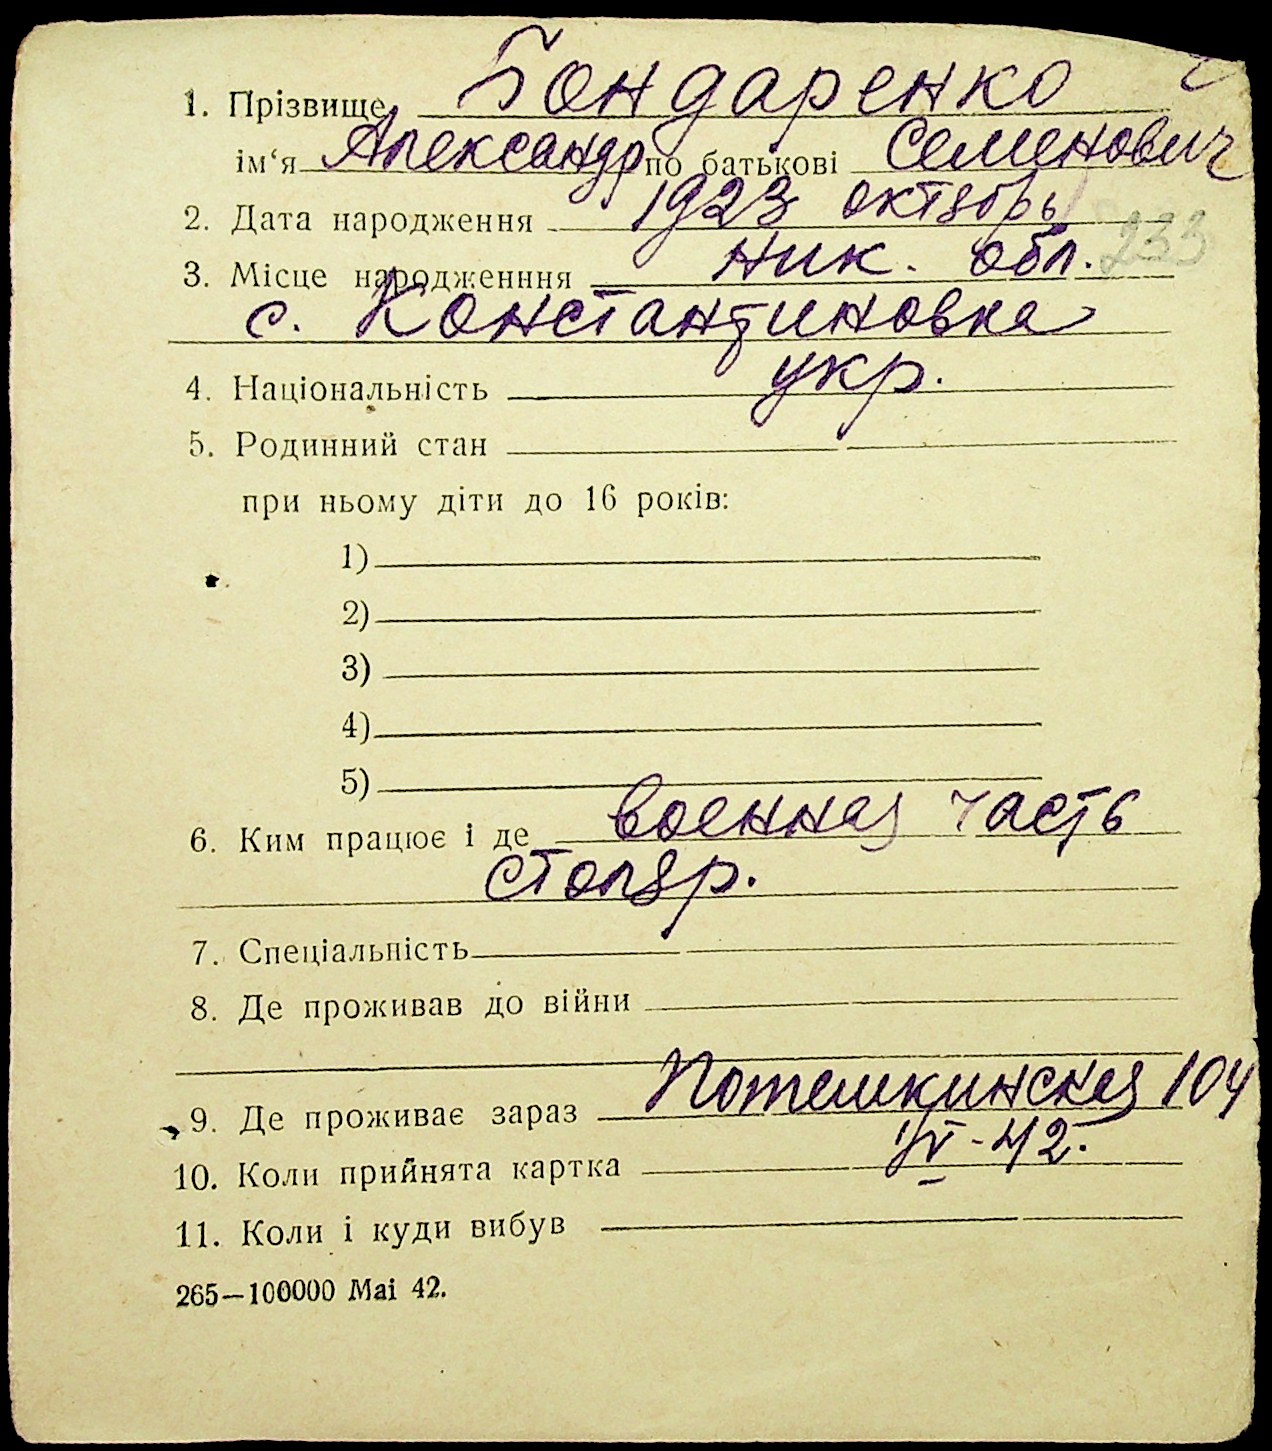 1. Прізвище Бондаренко
ім‘я Александр по батькові Семенович
2. Дата народження 1923 октябрь
233
3. Місце народженння Ник. обл.
с. Константиновка
4. Національність укр.
5. Родинний стан
при ньому діти до 16 років:
1)
2)
3)
4)
5)
6. Ким працює і де военная часть
столяр.
7. Спеціальність
8. Де проживав до війни
9. Де проживає зараз Потемкинская 104
10. Коли прийнята картка IV-42.
11. Коли і куди вибув
265—100000 Mai 42.